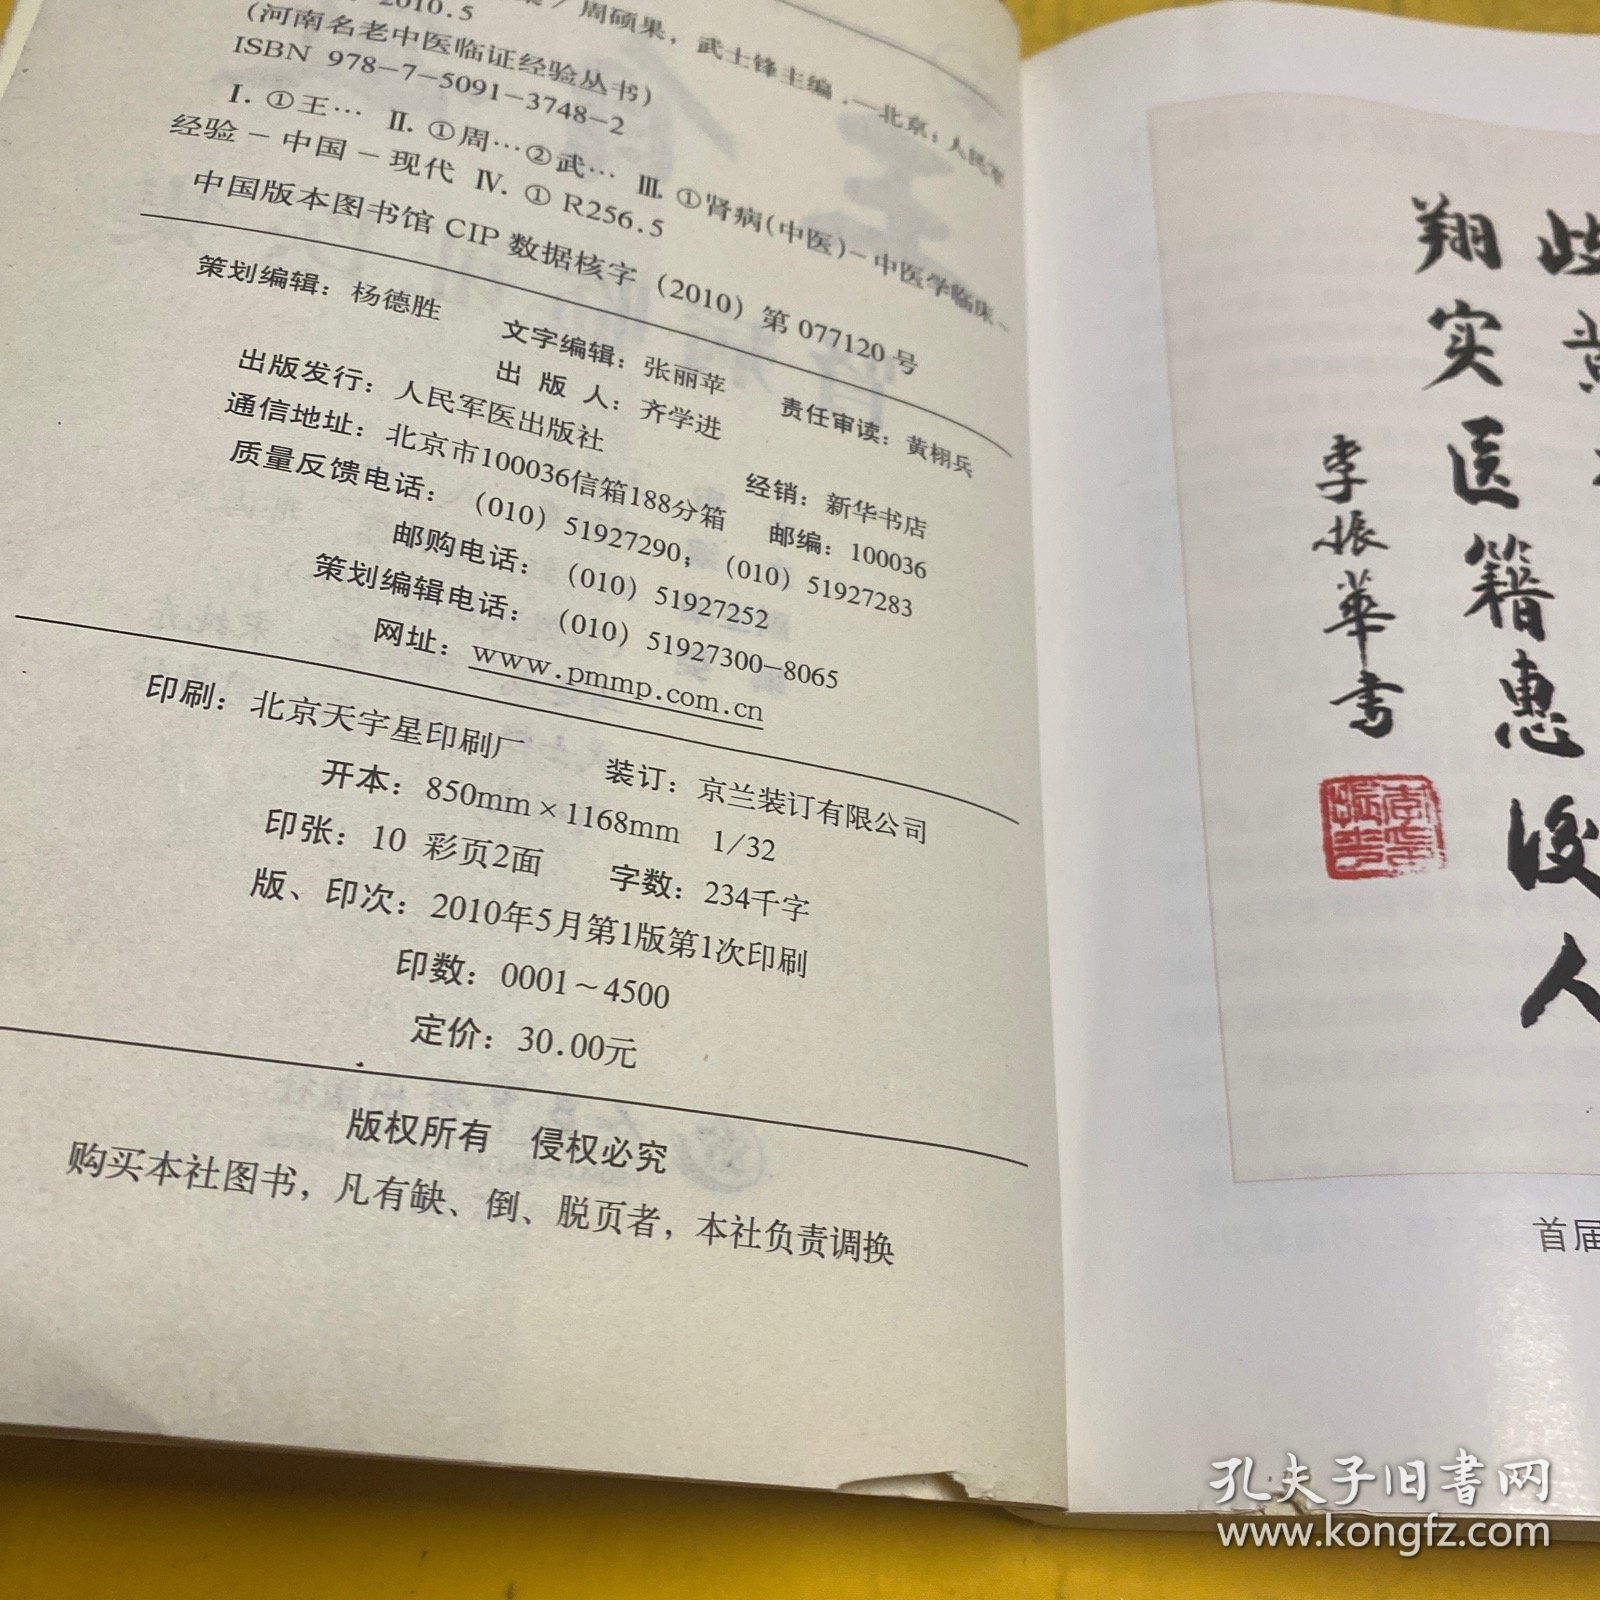 周硕果，武士锋主编．—北京：人民军
2010.5
(河南名老中医临证经验丛书)
ISBN 978-7-5091-3748-2
Ⅰ. ①王… Ⅱ. ①周…②武… Ⅲ. ①肾病(中医)-中医学临床-
经验-中国-现代 Ⅳ. ①R256.5
中国版本图书馆 CIP 数据核字（2010）第 077120 号
策划编辑：杨德胜 文字编辑：张丽苹 责任审读：黄栩兵
出 版 人：齐学进
出版发行：人民军医出版社 经销：新华书店
通信地址：北京市100036信箱188分箱 邮编：100036
质量反馈电话：（010）51927290；（010）51927283
邮购电话：（010）51927252
策划编辑电话：（010）51927300-8065
网址：www.pmmp.com.cn
印刷：北京天宇星印刷厂 装订：京兰装订有限公司
开本：850mm×1168mm 1/32
印张：10 彩页2面 字数：234千字
版、印次：2010年5月第1版第1次印刷
印数：0001～4500
定价：30.00元
版权所有 侵权必究
购买本社图书，凡有缺、倒、脱页者，本社负责调换
岐黄
翔实医籍惠后人
李振华书
首届
孔夫子旧书网
www.kongfz.com